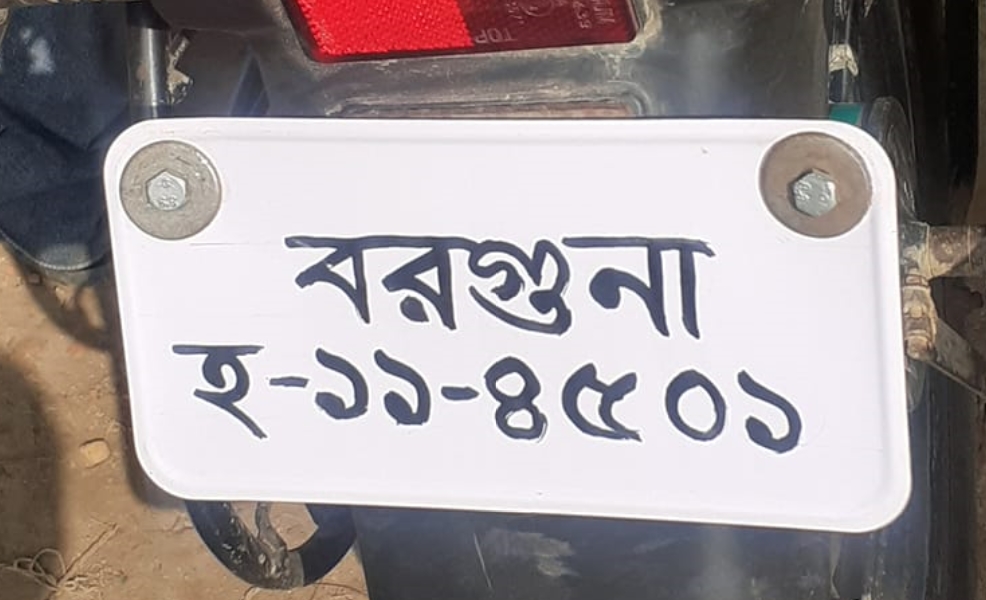 TOP
বরগুনা
হ-১১-৪৫০১